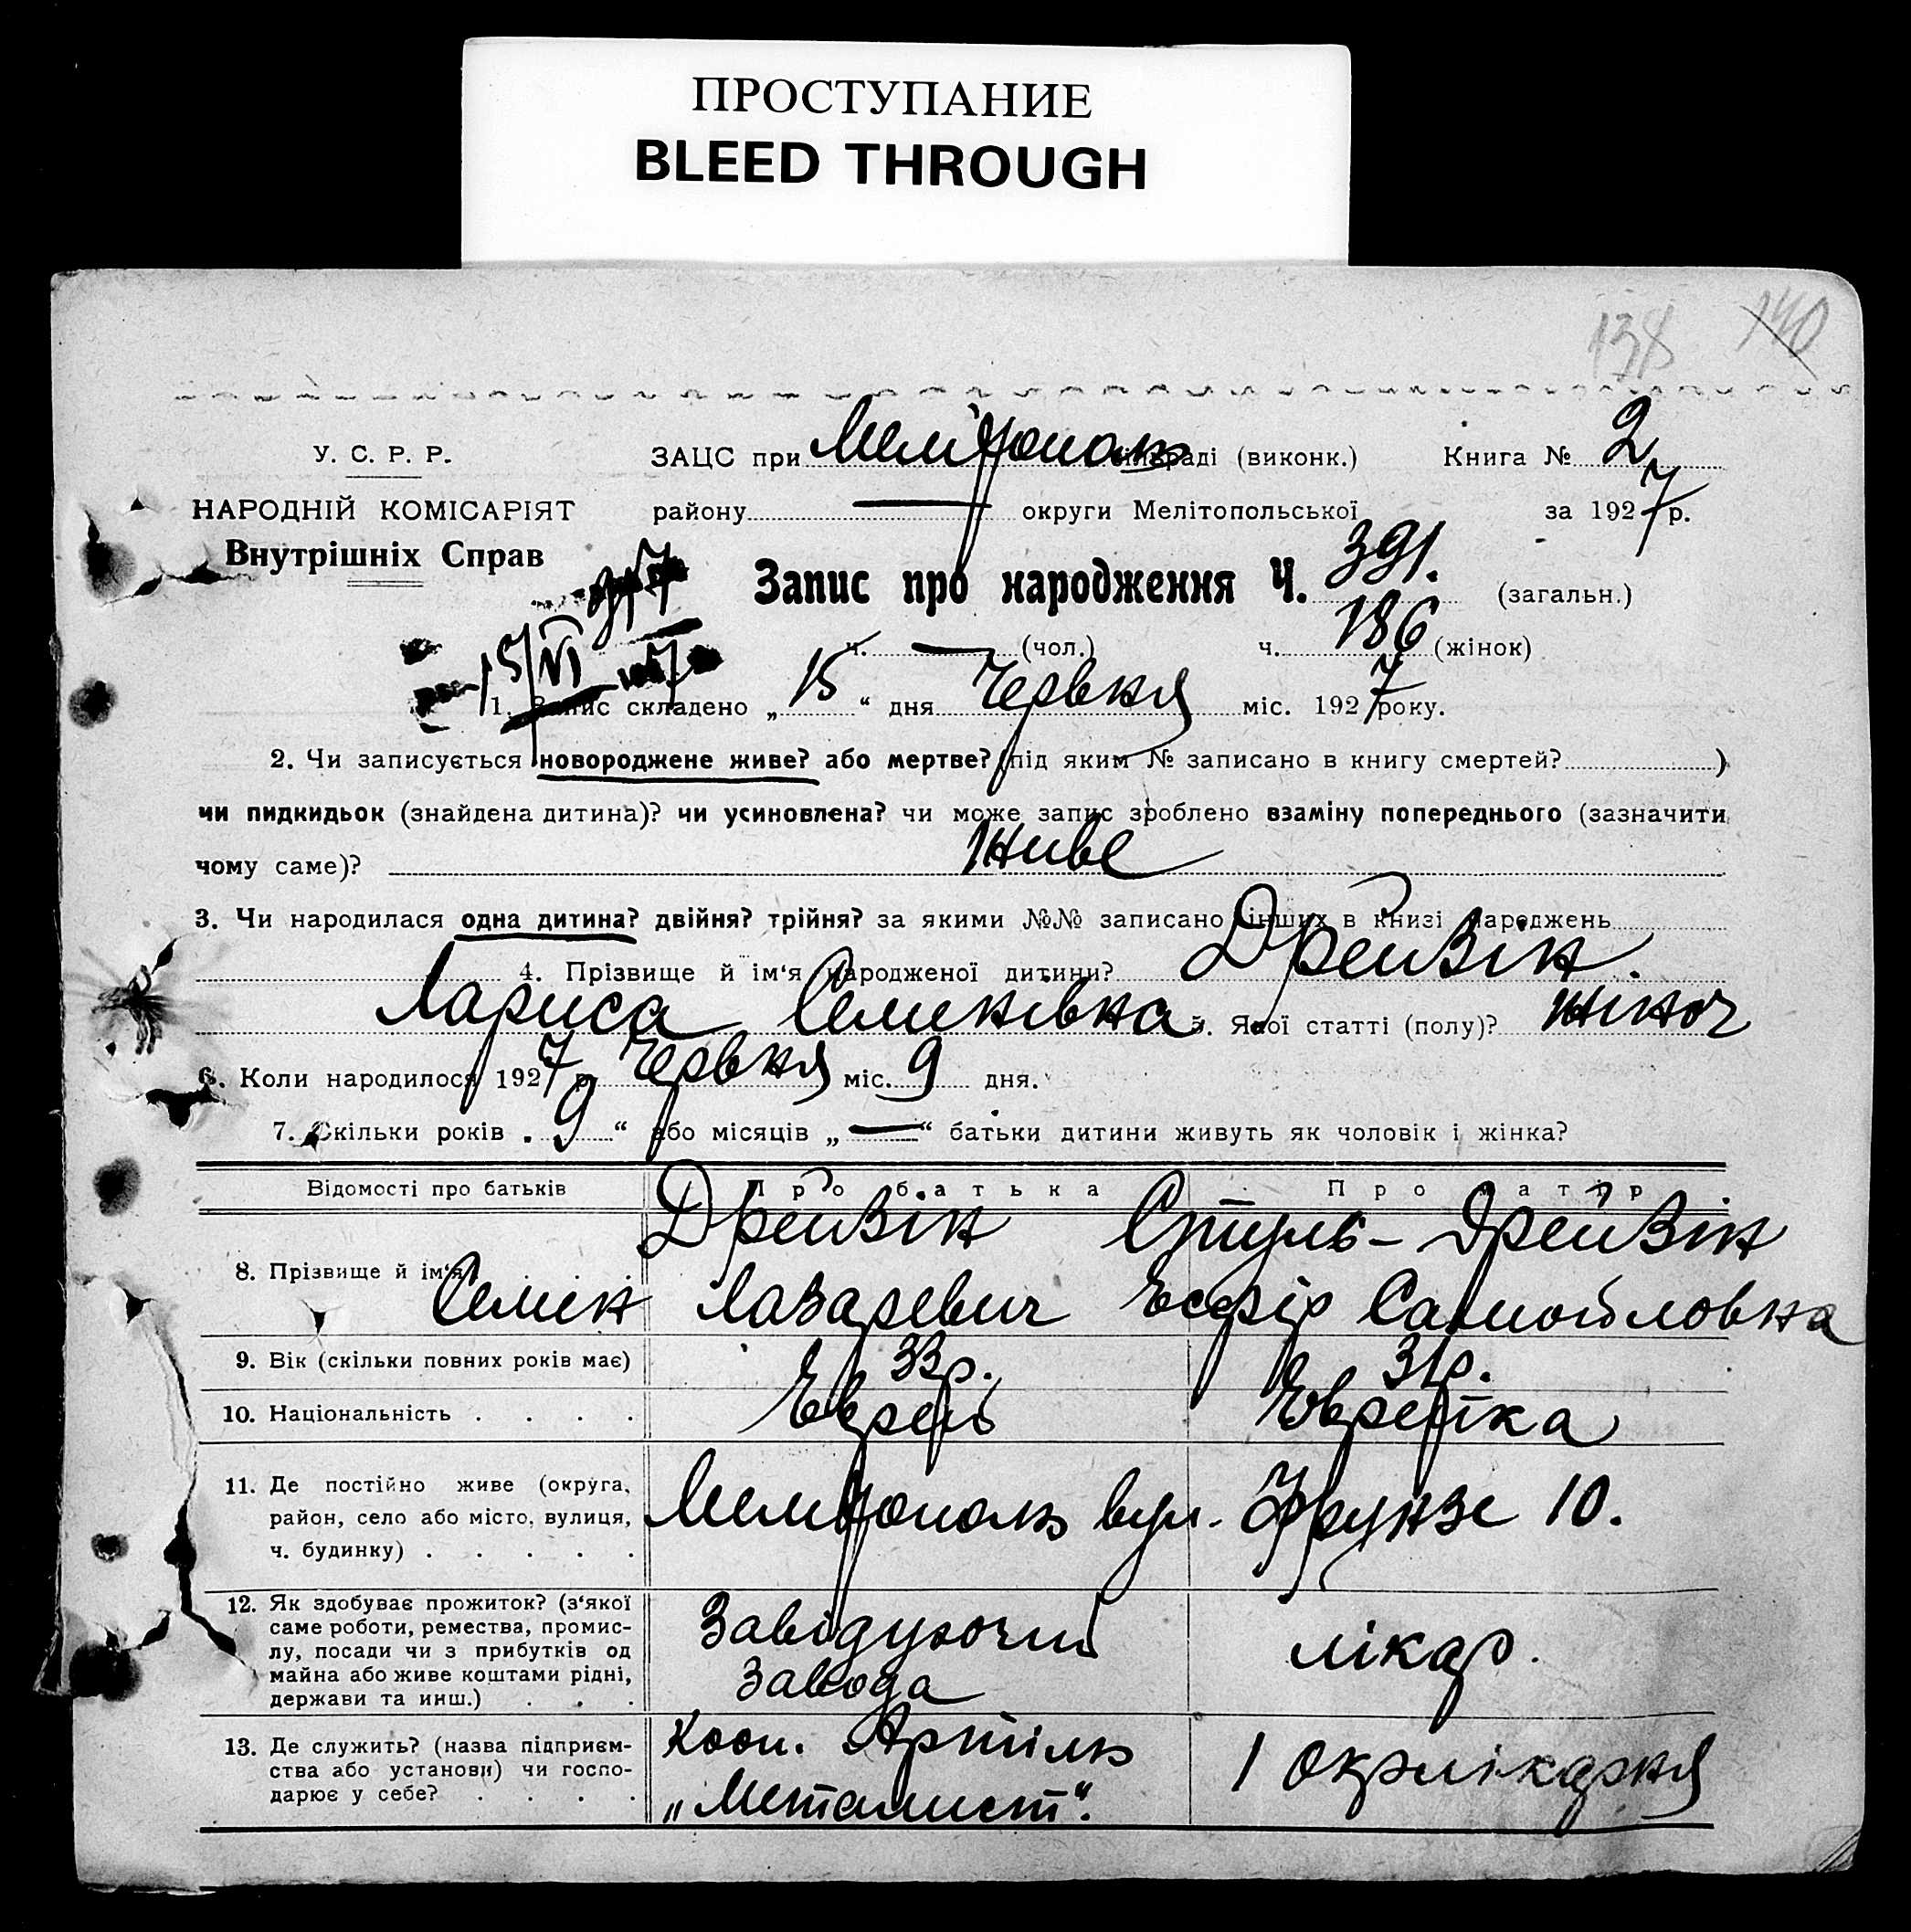 ПРОСТУПАНИЕ
BLEED THROUGH
138 140
У. С. Р. Р. ЗАЦС при Мелітополь раді (виконк.) Книга № 2
НАРОДНІЙ КОМІСАРІЯТ району — округи Мелітопольської за 1927 р.
Внутрішніх Справ
Запис про народження Ч. 391. (загальн.)
ч. — (чол.) ч. 186 (жінок)
15/VI
1. Запис складено „15“ дня Червня міс. 1927 року.
2. Чи записується новороджене живе? або мертве? (під яким № записано в книгу смертей? )
чи пидкидьок (знайдена дитина)? чи усиновлена? чи може запис зроблено взаміну попереднього (зазначити
чому саме)? живе
3. Чи народилася одна дитина? двійня? трійня? за якими №№ записано інших в книзі народжень
4. Прізвище й ім‘я народженої дитини? Дрейзін.
Лариса Семенівна 5. Якої статті (полу)? жіноч
6. Коли народилося 1927 р. Червня міс. 9 дня.
7. Скільки років „9“ або місяців „—“ батьки дитини живуть як чоловік і жінка?
Відомості про батьків Про батька Про матір
Дрейзін Стуль-Дрейзін
8. Прізвище й ім‘я
Семен Лазаревич Есфір Самойловна
9. Вік (скільки повних років має) 33 р. 31 р.
10. Національність . . . . Еврей Еврейка
11. Де постійно живе (округа,
район, село або місто, вулиця, Мелітополь вул. Фрунзе 10.
ч. будинку) . . . . .
12. Як здобуває прожиток? (з‘якої
саме роботи, ремества, промис- Завідуючий лікар.
лу, посади чи з прибутків од
майна або живе коштами рідні, Завода
держави та инш.) . . .
13. Де служить? (назва підприєм- Кооп. Артіль
ства або установи) чи госпо- 1 Окрлікарня
дарює у себе? . . . . „Металист“.